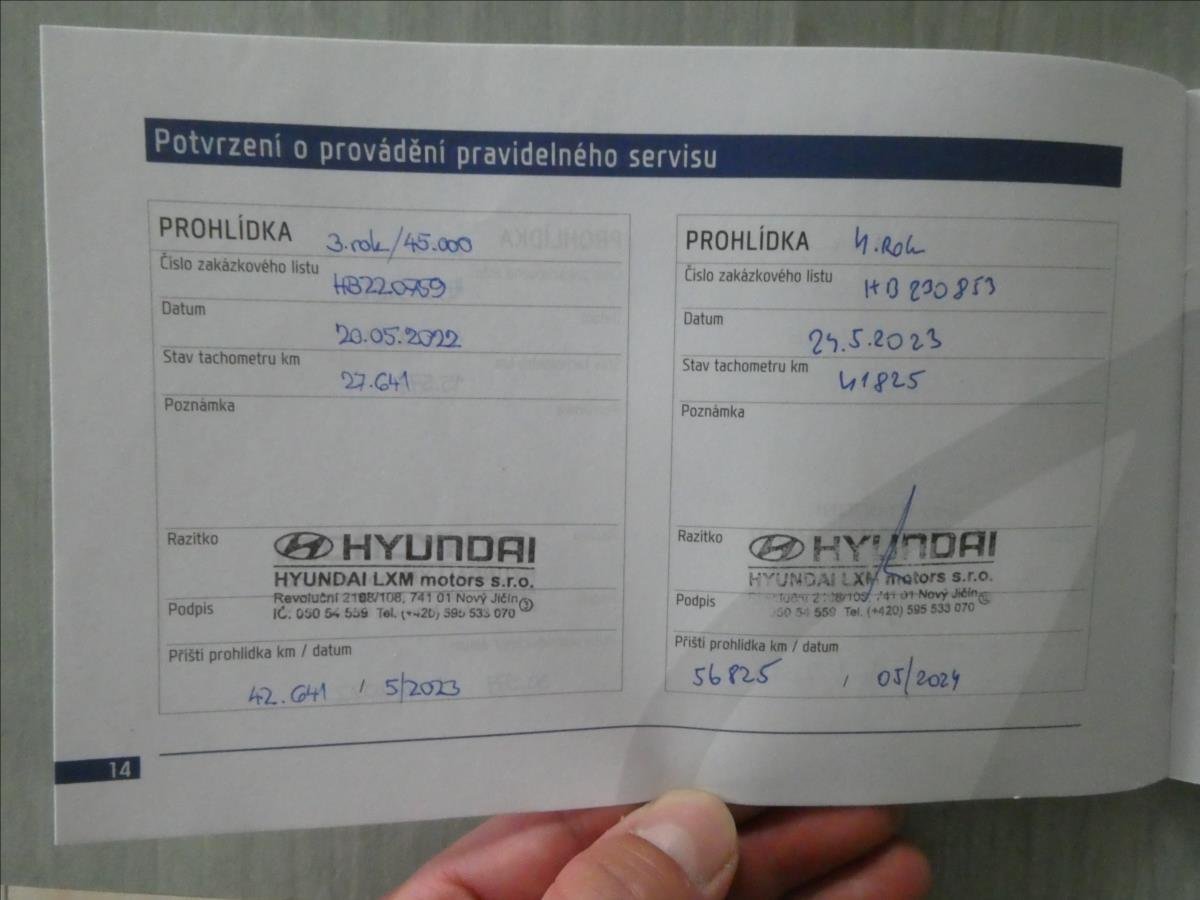 Potvrzení o provádění pravidelného servisu
PROHLÍDKA 3.rok/45.000
Číslo zakázkového listu HB220759
Datum 20.05.2022
Stav tachometru km 27.641
Poznámka
Razítko HYUNDAI
HYUNDAI LXM motors s.r.o.
Revoluční 2198/108, 741 01 Nový Jičín 3
Podpis IČ: 050 54 559 Tel. (+420) 595 533 070
Příští prohlídka km / datum
42.641 / 5/2023
PROHLÍDKA 4.Rok
Číslo zakázkového listu HB230853
Datum 24.5.2023
Stav tachometru km 41825
Poznámka
Razítko HYUNDAI
HYUNDAI LXM motors s.r.o.
741 01 Nový Jičín
Podpis 050 54 559 Tel. (+420) 595 533 070
Příští prohlídka km / datum
56825 / 05/2024
14